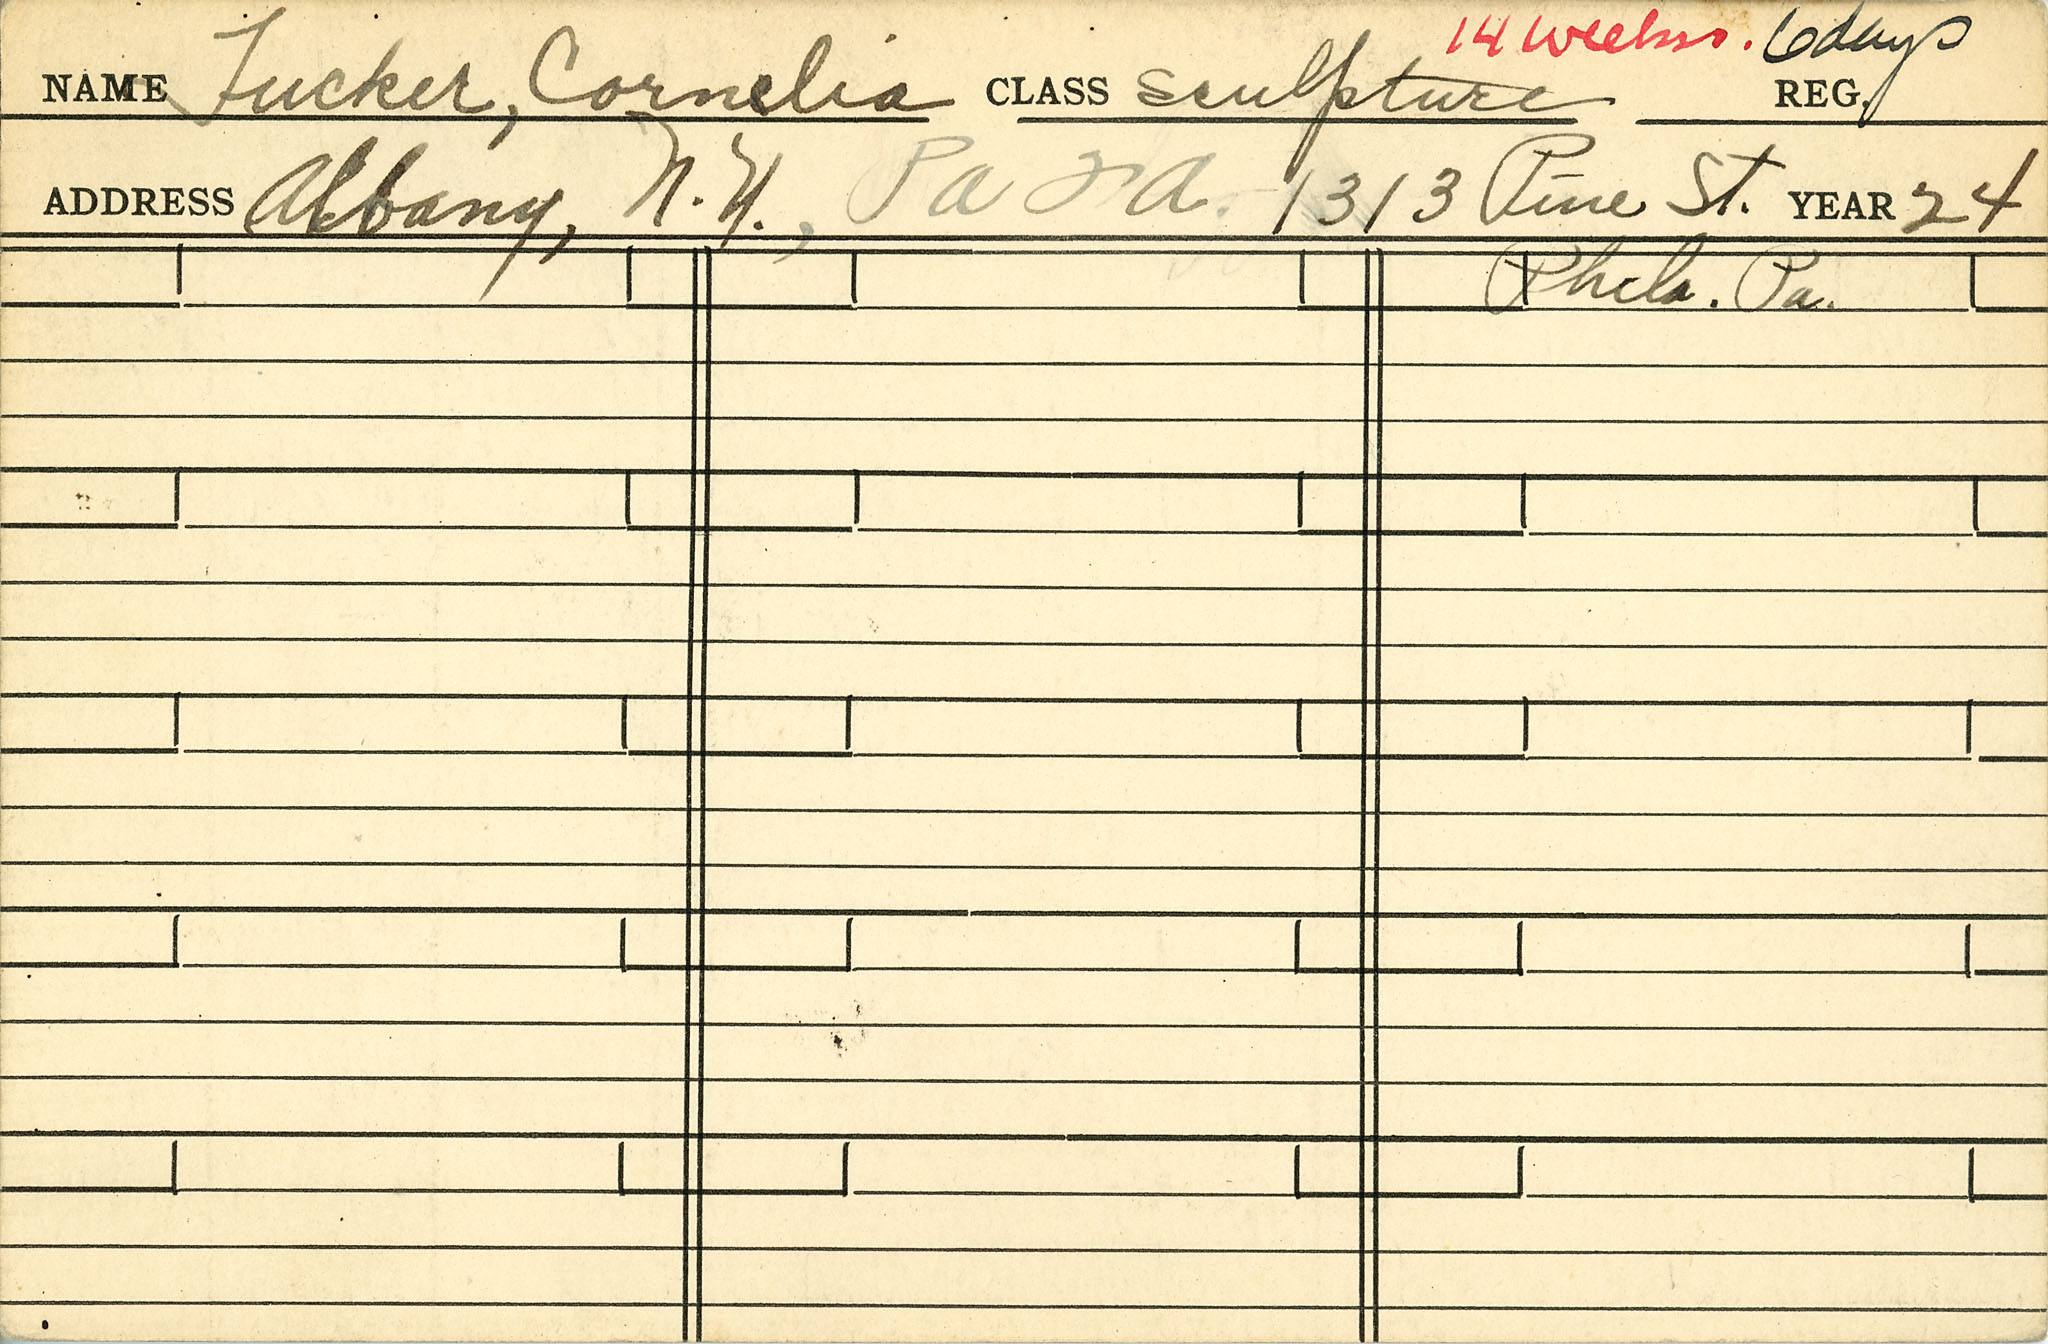 14 weeks. 6 days
NAME Tucker, Cornelia CLASS Sculpture REG.
ADDRESS Albany, N.Y., 1313 Pine St. YEAR 24
Phila. Pa.